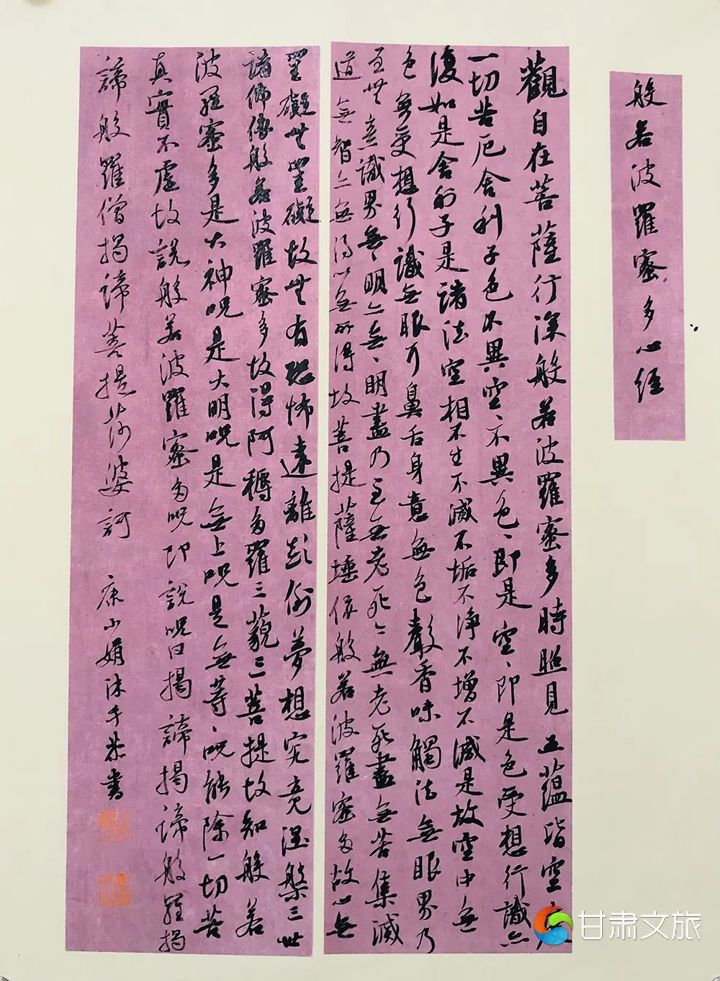 般若波羅蜜多心經
觀自在菩薩行深般若波羅蜜多時照見五蘊皆空度
一切苦厄舍利子色不異空、不異色、即是空、即是色受想行識亦
復如是舍利子是諸法空相不生不滅不垢不淨不增不減是故空中無
色無受想行識無眼耳鼻舌身意無色聲香味觸法無眼界乃
至無意識界無、明亦無、明盡乃至無老死亦無老死盡無苦集滅
道無智亦無得以無所得故菩提薩埵依般若波羅蜜多故心無
罣礙無罣礙故無有恐怖遠離顛倒夢想究竟涅槃三世
諸佛依般若波羅蜜多故得阿耨多羅三藐三菩提故知般若
波羅蜜多是大神咒是大明咒是無上咒是無等、咒能除一切苦
真實不虛故說般若波羅蜜多咒即說咒曰揭諦揭諦般羅揭
諦般羅僧揭諦菩提莎婆訶 康小娟沐手恭書
甘肃文旅